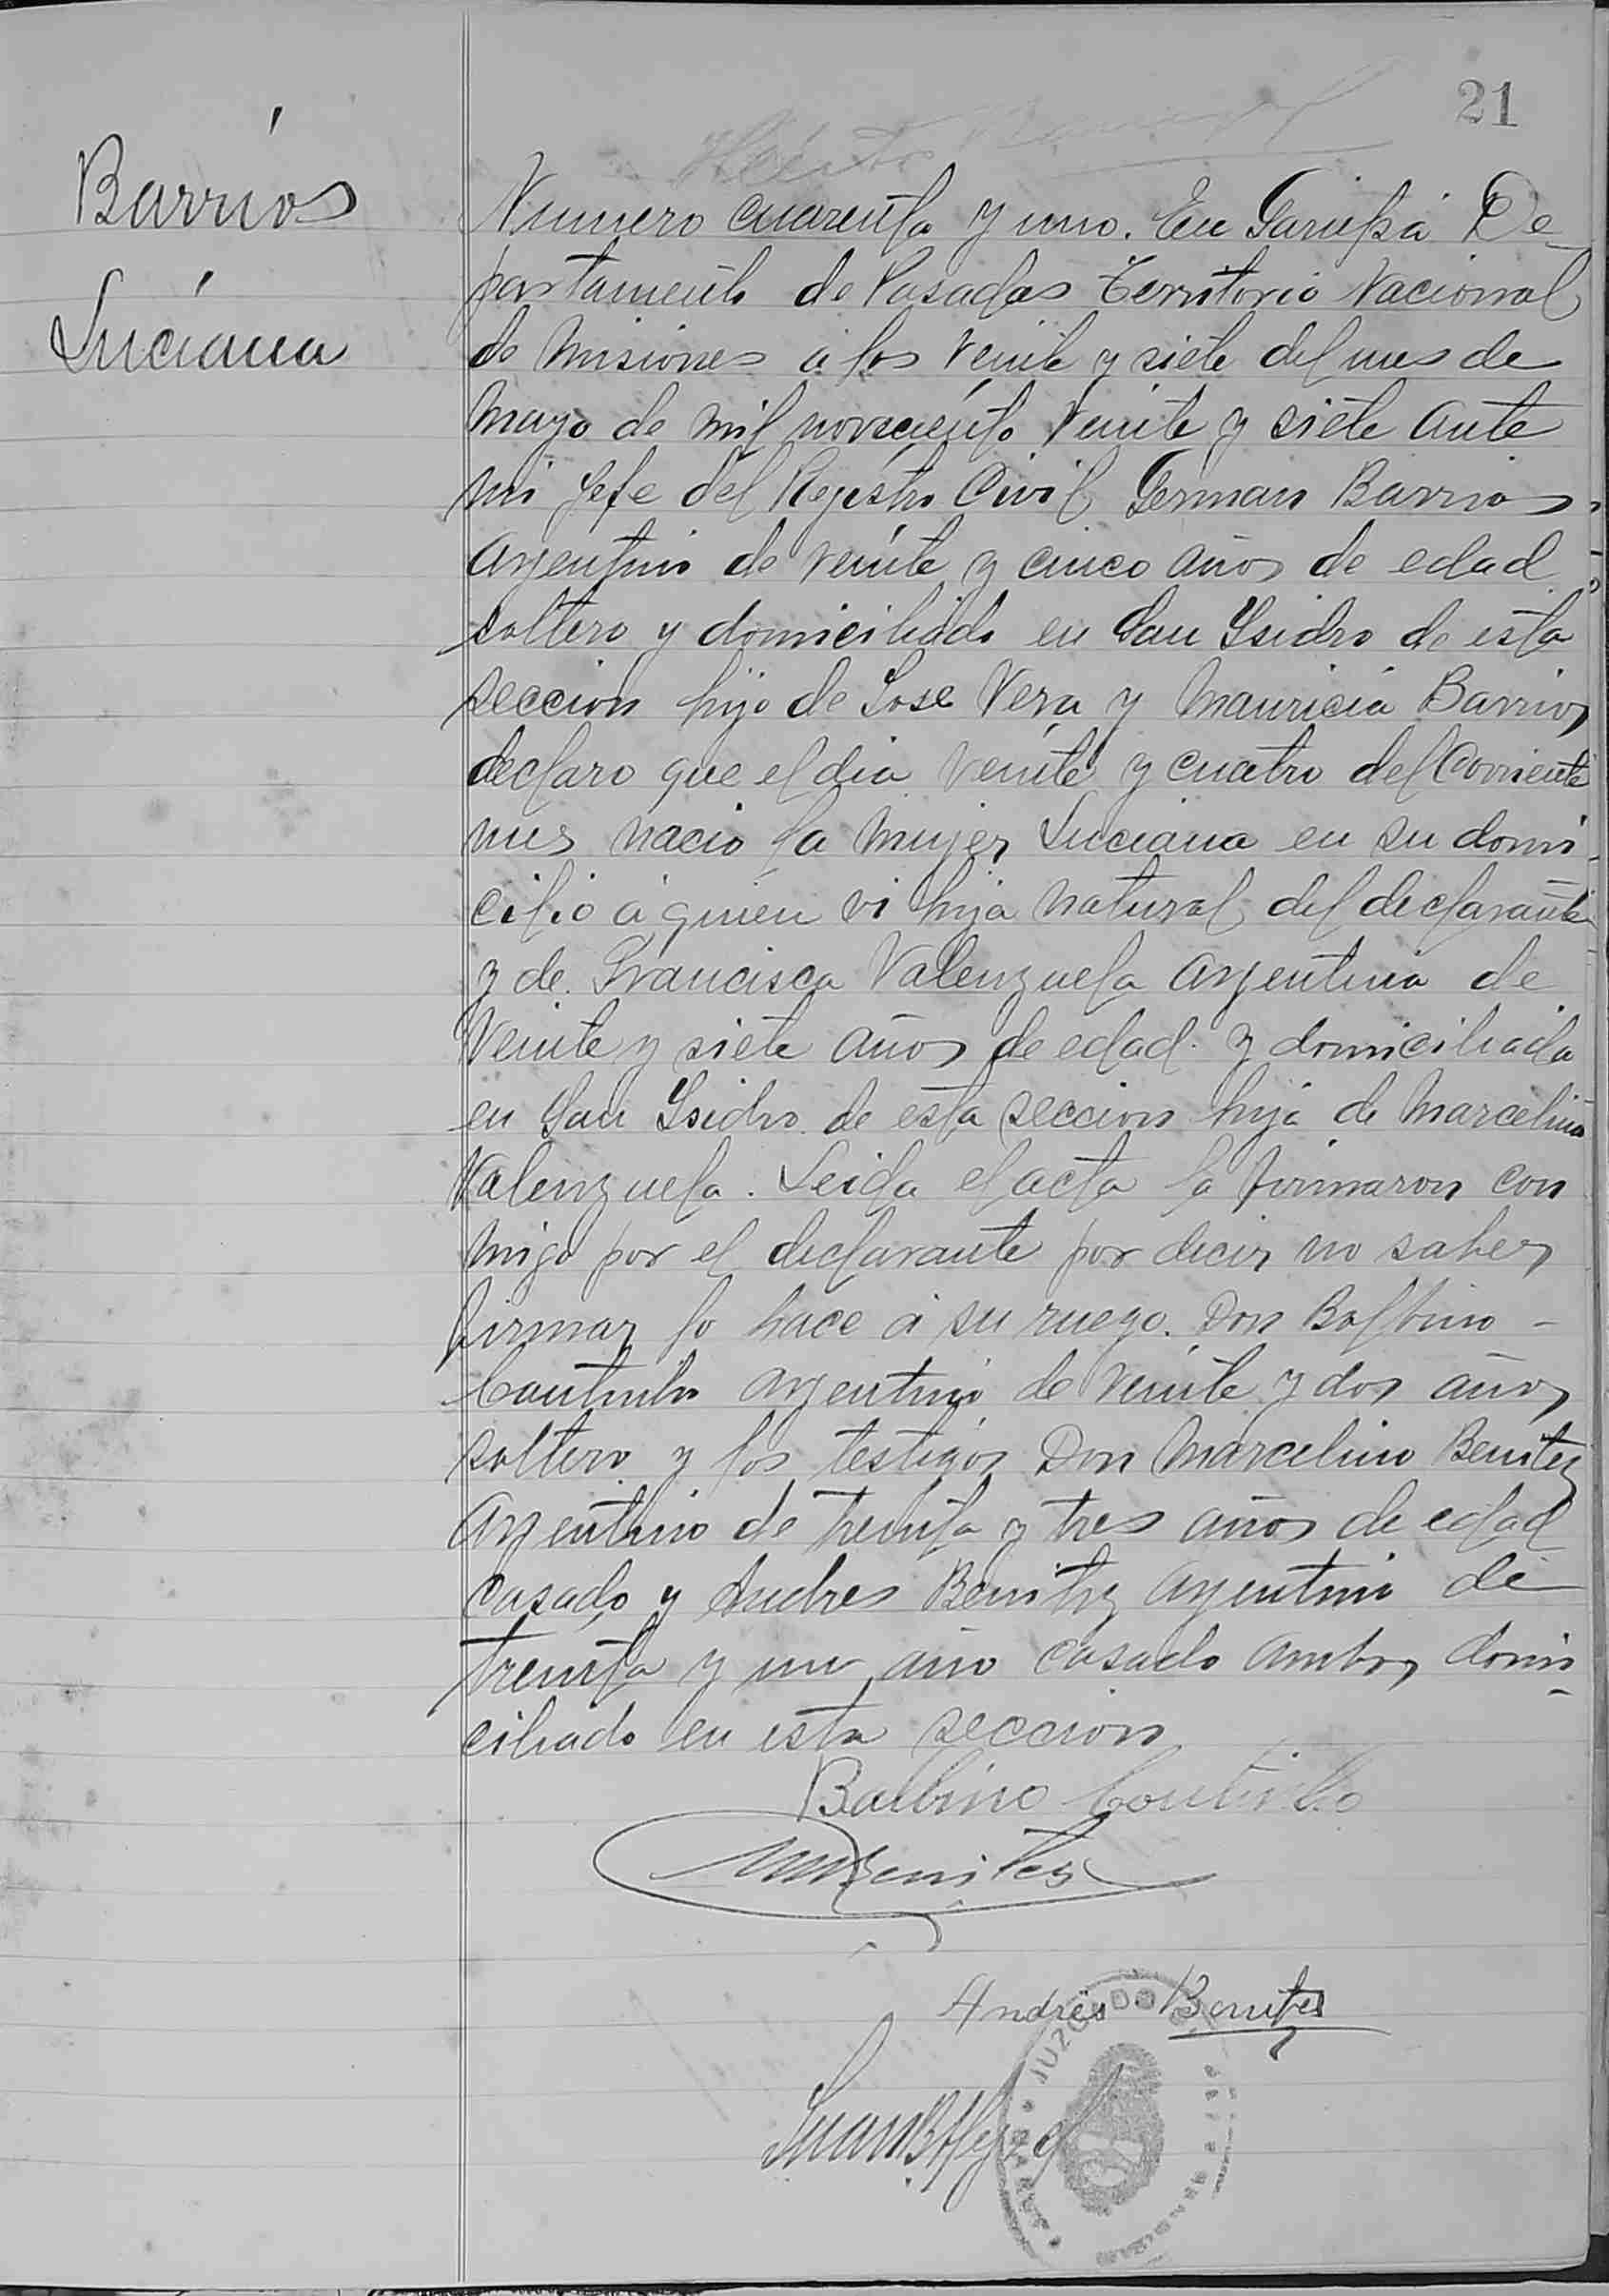 21
Barrios
Luciana
Numero cuarenta y uno. En Garupá De-
partamento de Posadas Territorio Nacional
de Misiones a los veinte y siete del mes de
Mayo de mil noveciento veinte y siete ante
mi Jefe del Registro Civil German Barrios
argentino de veinte y cinco años de edad
soltero y domiciliado en San Ysidro de esta
seccion hijo de Jose Vera y Mauricia Barrios
declaro que el dia veinte y cuatro del corriente
mes nacio la mujer Luciana en su domi-
cilio á quien vi hija natural del declarante
y de Francisca Valenzuela argentina de
veinte y siete años de edad y domiciliada
en San Ysidro de esta seccion hija de Marcelina
Valenzuela. Leida el acta la firmaron con
migo por el declarante por decir no saber
firmar lo hace á su ruego. Don Balbino -
Coutinho argentino de veinte y dos años
soltero y los testigos Don Marcelino Benitez
argentino de treinta y tres años de edad
casado y Andres Benitez argentino de
treinta y un año casado ambos domi-
ciliado en esta seccion
Balbino Coutinho
M Benitez
Andrés Benites
Juan
JUZGADO DE